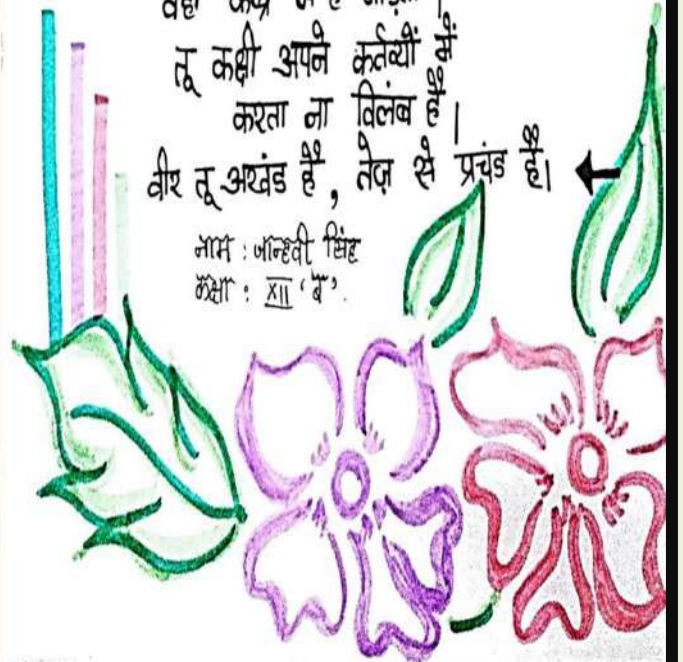 तू कभी अपने कर्तव्यों में
करता ना विलंब है।
वीर तू अखंड है, तेज़ से प्रचंड है।
नाम : जान्हवी सिंह
कक्षा : XII 'ब'.